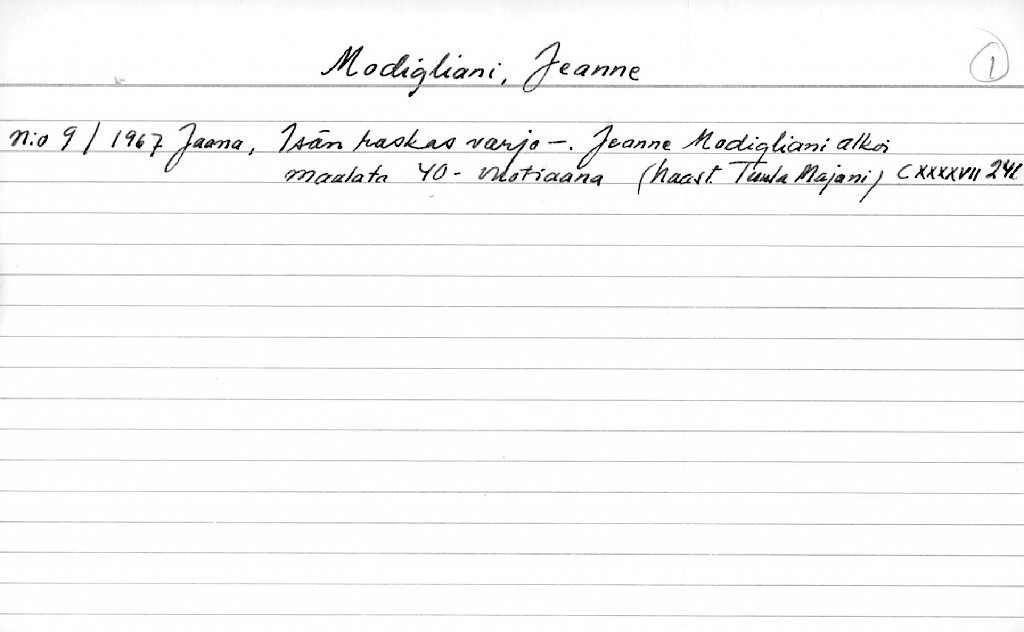 Modigliani, Jeanne
1
n:o 9 / 1967 Jaana, Isän raskas varjo –. Jeanne Modigliani alkoi
maalata 40-vuotiaana (haast. Tuula Majani) CXXXXVII 241